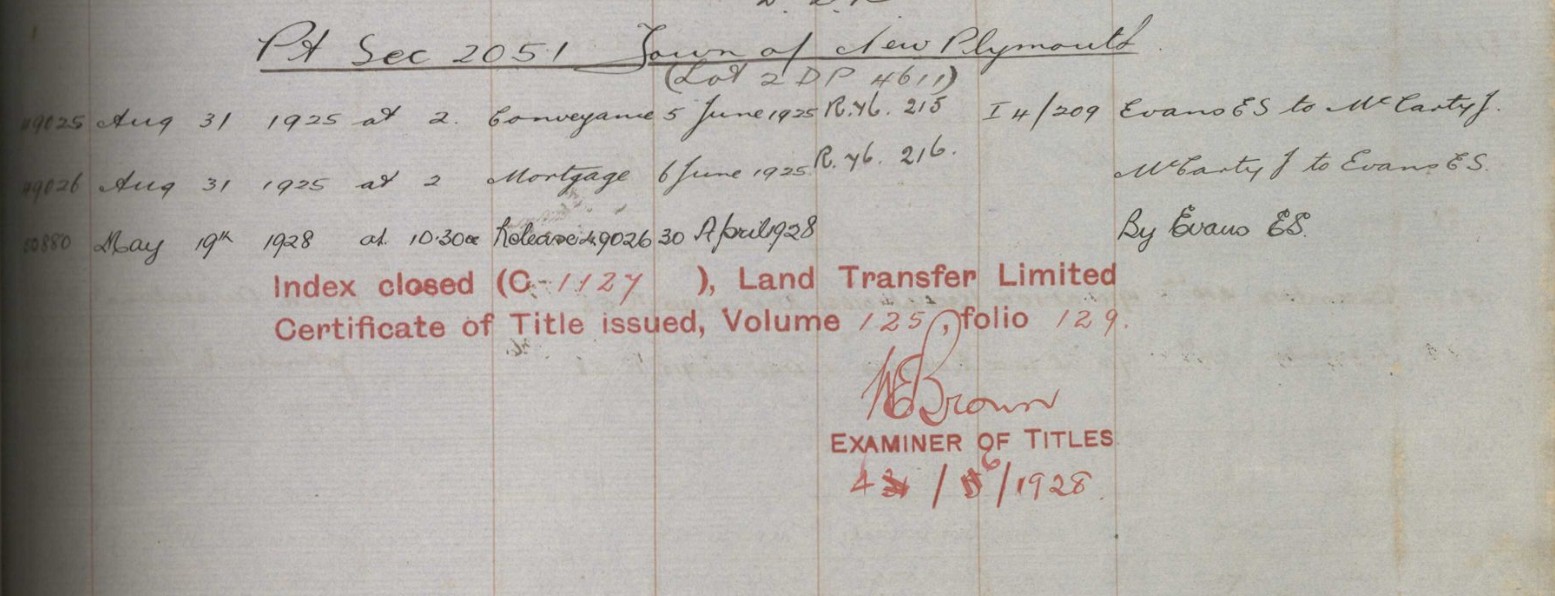 Pt Sec 2051 Town of New Plymouth
(Lot 2 DP 4611)
49025 Aug 31 1925 at 2. Conveyance 5 June 1925 R.46. 215 I 4/209 Evans ES to McCarty J.
49026 Aug 31 1925 at 2 Mortgage 6 June 1925 R.46. 216. McCarty J to Evans ES.
50880 May 19th 1928 at 10.30a Release 49026 30 April 1928 By Evans ES.
Index closed (C-1127 ), Land Transfer Limited
Certificate of Title issued, Volume 125, folio 129.
Brown
EXAMINER OF TITLES
4/6/1928